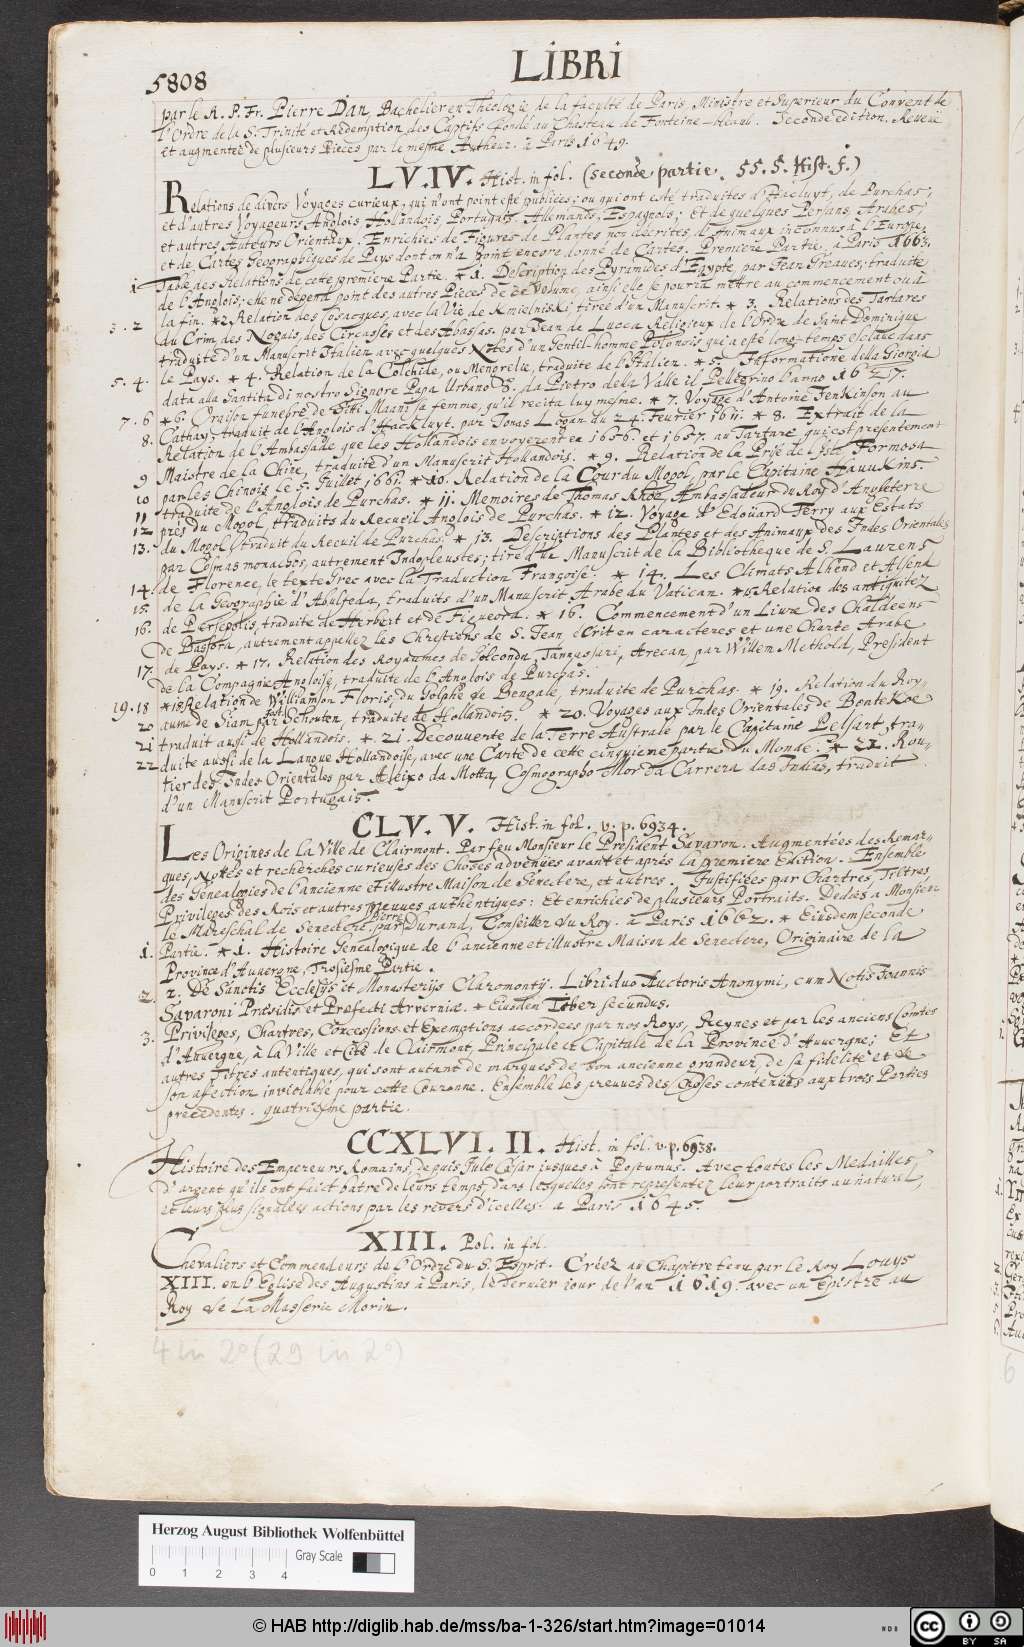 5808
LIBRI
par le R. P. Fr. Pierre Dan, Bachelier en Theologie de la faculté de Paris, Ministre et Superieur du Convent de
l'Ordre de la S. Trinité et Redemption des Captifs fondé au Chasteau de Fonteine-bleau. Seconde edition. Reveuë
et augmenteé de plusieurs Pieces par le mesme Autheur. à Paris 1649.
LV. IV. Hist. in fol. (seconde partie. 55. 5. Hist. f.)
Relations de divers Voyages curieux, qui n'ont point esté publiées; ou qui ont esté traduites d'Hacluyt, de Purchas,
et d'autres Voyageurs Anglois Hollandois, Portugais, Allemands, Espagnols; et de quelques Persans, Arabes,
et autres Auteurs Orientaux. Enrichies de Figures de Plantes non décrites, d'Animaux inconnus à l'Europe,
et de Cartes Geographiques de Pays dont on n'a point encore donné de Cartes. Premiere Partie. à Paris 1663.
1 Table des Relations de cette premiere Partie. * 1. Description des Pyramides d'Egypte, par Jean Greaves; traduite
de l'Anglois; elle ne dépend point des autres Pieces de ce Volume, ainsi elle se pourra mettre au commencement ou à
la fin. *2 Relation des Cosacques, avec la Vie de Kmielniski, tirée d'un Manuscrit. * 3. Relations des Tartares
3. 2 du Crim, des Nogais, des Circasses et des Abassas. par Jean de Lucca Religieux de l'Ordre de Saint Dominique
traduite d'un Manuscrit Italien avec quelques Notes d'un Gentil-homme Polonois qui a esté long-temps esclave dans
le Pays. * 4. Relation de la Colchide, ou Mengrelie, traduite de l'Italien. * 5. Informatione della Giorgia
5. 4. data alla Santita di nostro Signore Papa Urbano 8. da Pietro della Valle il Pellegrino l'anno 1627.
7. 6 * 6. Oraison funebre de Sitti Maani sa femme, qu'il recita luy mesme. * 7. Voyage d'Antoine Jenkinson au
8. Cathay, traduit de l'Anglois d'Hackluyt. par Jonas Logan du 24. Fevrier 1611. * 8. Extrait de la
Relation de l'Ambassade que les Hollandois envoyerent en 1656. et 1657. au Tartare qui est presentement
9 Maistre de la Chine, traduite d'un Manuscrit Hollandois. * 9. Relation de la Prise de l'Isle Formosa
10 par les Chinois le 5. Juillet, 1661. * 10. Relation de la Cour du Mogol, par le Capitaine Hawkins.
11 traduite de l'Anglois de Purchas. * 11. Memoires de Thomas Rhoë, Ambassadeur du Roy d'Angleterre
12 prés du Mogol, traduits du Recueil Anglois de Purchas. * 12. Voyage d'Edouard Terry aux Estats
13. du Mogol, traduit du Recuil de Purchas. * 13. Descriptions des Plantes et des Animaux des Indes Orientales
par Cosmas monachos, autrement Indopleustes; tiré d'un Manuscrit de la Bibliotheque de S. Laurens
14. de Florence, le texte Grec avec la Traduction Françoise. * 14. Les Climats Alhend et Alsend
15. de la Geographie d'Abulfeda, traduits d'un Manuscrit Arabe du Vatican. * 15 Relation des antiquitez
16. de Persepolis, traduite de Herbert et de Figueroa. * 16. Commencement d'un Livre des Chaldéens
de Bassora, autrement appellez les Chrestiens de S. Jean, écrit en caracteres et une Charte Arabe
17. de Pays. * 17. Relation des Royaumes de Golconda, Tannassari, Arecan, par Willem Methold, President
de la Compagnie Angloise, traduite de l'Anglois de Purchas.
19. 18 * 18 Relation de Williamson Floris, du Golphe de Bengale, traduite de Purchas. * 19. Relation du Roy-
20 aume de Siam par Jost Schouten, traduite de Hollandois. * 20. Voyages aux Indes Orientales de Bontekoe
21 traduit aussi de Hollandois. * 21. Decouverte de la Terre Australe par le Capitaine Pelsart, tra-
22 duite aussi de la Langue Hollandoise, avec une Carte de cette cinquieme partie du Monde. * 22. Rou-
tier des Indes Orientales par Aleixo da Motta, Cosmographo Mor da Carrera das Indias, traduit
d'un Manuscrit Portugais.
CLV. V. Hist. in fol. v. p. 6934.
Les Origines de la Ville de Clairmont. Par feu Monsieur le President Savaron. Augmentées des Remar-
ques, Nottes et recherches curieuses des Choses advenües avant et aprés la premiere Edition. Ensemble
des Genealogies de l'ancienne et illustre Maison de Senectere, et autres. Justifiées par Chartres, Tiltres,
Privileges des Rois et autres preuves authentiques: Et enrichies de plusieurs Portraits. Dediés a Monsieur
le Mareschal de Senectere. par Pierre Durand, Conseiller du Roy. à Paris 1662. * Eiusdem seconde
1. Partie. * 1. Histoire Genealogique de l'ancienne et illustre Maison de Senectere, Originaire de la
Province d'Auvergne, Troisiesme Partie.
2. 2. De Sanctis Ecclesijs et Monasterijs Claromontij. Libri duo Auctoris Anonymi, cum Notis Joannis
Savaroni Praesidis et Praefecti Arverniae. * Eiusdem Liber secundus.
3. Privileges, Chartres, Concessions et Exemptions accordees par nos Roys, Reynes et par les anciens Comtes
d'Auvergne, à la Ville et Cité de Clairmont, Principale et Capitale de la Province d'Auvergne; Et
autres Titres autentiques, qui sont autant de marques de son ancienne grandeur, de sa fidelité et de
son affection inviolable pour cette Couronne. Ensemble les preuves des Choses contenues aux trois Parties
precedentes. quatriesme partie.
CCXLVI. II. Hist. in fol. v. p. 6938.
Histoire des Empereurs Romains, depuis Jule Cesar jusques à Postumus. Avec toutes les Medailles
d'argent qu'ils ont faict batre de leurs temps, dans lesquelles sont representez leur portraits au naturel,
et leurs plus signalées actions par les revers d'icelles. a Paris 1645.
XIII. Pol. in fol.
Chevaliers et Commendeurs de l'Ordre du S. Esprit. Créez au Chapitre tenu par le Roy Louys
XIII. en l'Eglise des Augustins à Paris, le dernier jour de l'an 1619. avec un Epistre au
Roy de La Masserie Morin.
4 in 2° (29 in 2°)
Herzog August Bibliothek Wolfenbüttel
Gray Scale
0 1 2 3 4
© HAB http://diglib.hab.de/mss/ba-1-326/start.htm?image=01014
cc BY SA